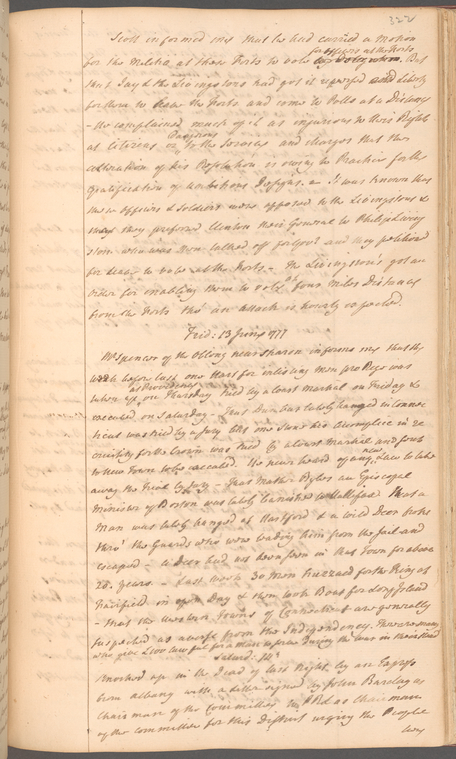 322
Scott informed me that he had carried a Motion
for Officers at the Forts
for the Militia at those Forts to vote . But
that Jay & the Livingstons had got it reversed and Liberty
for them to leave the Forts and come to Polls at a Distance
– He complained much of it as injurious to their Rights
as Citizens or to the Services and charges that this
alteration of his Resolution is owing to Practices for the
gratification of ambitious Designs. It was known that
these officers & Soldiers were opposed to the Livingstons &
they preferred Clinton their General to Philip Living
ston who was then talked off for Govr and they petitioned
for leave to vote at the Forts – The Livingston's got an
order for enabling them to vote four Miles Distance
from the Forts tho' an attack is hourly expected.
Frid: 13 June 1777
Mr Spencer of the Oblong near Sharon informs me that the
week before last one Hart for inlisting men pro Rege was
at Providence
taken on Thursday tried by a Court Martial on Friday &
executed on Saturday – That Dunbar lately hanged in Connec
ticut was tried by a Jury but one Stone his Accomplice in re
cruiting for the Crown was tried by a Court Martial and sent
to New Town to be executed. He never heard of any new Law to take
away the Trial by Jury – That Mather Byles an Episcopal
Minister of Boston was lately banished to Hallifax That a
Man was lately hanged at Hartford & a wild Deer broke
thro' the Guards who were leading him from the Jail and
escaped – a Deer had not been seen in that Town for above
20 years. – Last week 30 Men huzzaed for the King at
in open Day & then took Boat for Long Island
– That the western Towns of Connecticut are generally
suspected as averse from the Independency. There are many
who give £100 lawful for a Man to serve during the War in their Stead
Saturd: 14th
Knocked up in the Dead of last Night by an Express
from Albany with a Letter signed by John Barclay as
Chairman of the Committee to Rd as Chairman
of the Committee for this District urging the People